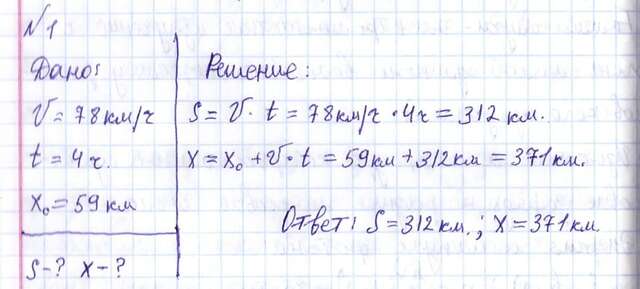 №1
Дано:
V = 78 км/ч
t = 4 ч.
x₀ = 59 км
S - ? x - ?
Решение:
S = V · t = 78 км/ч · 4 ч = 312 км.
x = x₀ + V · t = 59 км + 312 км = 371 км.
Ответ: S = 312 км. ; x = 371 км.